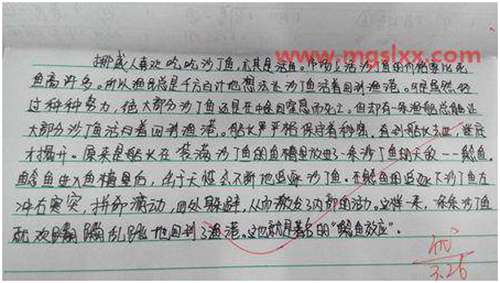 挪威人喜欢吃沙丁鱼,尤其是活鱼。市场上活沙丁鱼的价格要比死
www.mgslxx.com
鱼高许多。所以渔民总是千方百计地想办法让沙丁鱼活着回到渔港。可是虽然经
过种种努力,绝大部分沙丁鱼还是在中途因窒息而死亡。但却有一条渔船总能让
大部分沙丁鱼活着回到渔港。船长严格保守着秘密,直到船长去世,谜底
才揭开。原来是船长在装满沙丁鱼的鱼槽里放进了一条沙丁鱼的天敌——鲶鱼。
鲶鱼进入鱼槽里后,由于天性会不断地追逐沙丁鱼。在鲶鱼的追逐下沙丁鱼左
冲右突,拼命游动,四处躲避,从而激发了内部的活力。这样一来,一条条沙丁鱼
就欢蹦乱跳地回到了渔港。这也就是著名的“鲶鱼效应”。
优
3.26